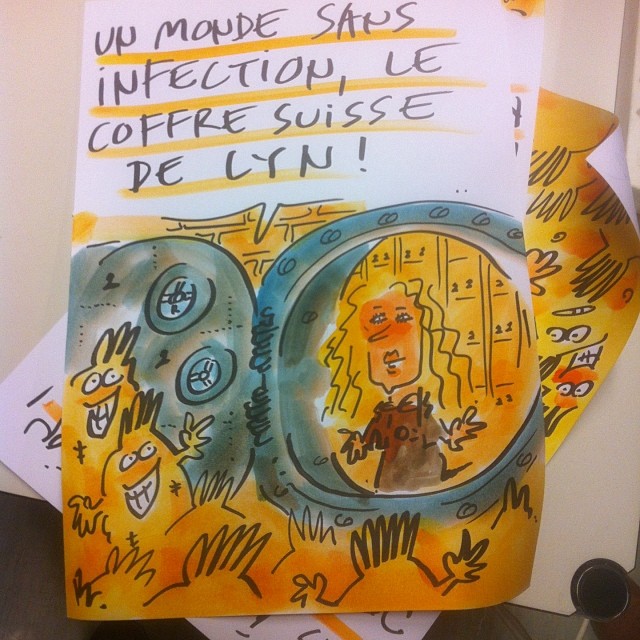 UN MONDE SANS
INFECTION, LE
COFFRE SUISSE
DE LYN !